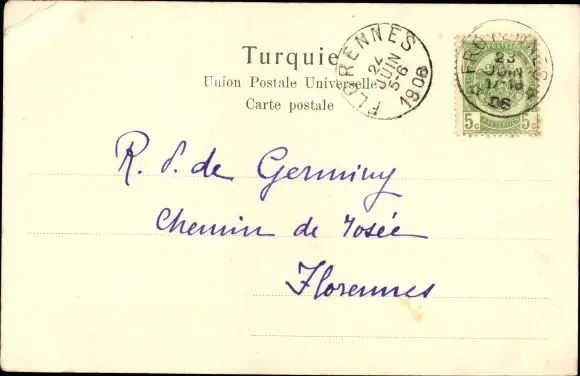 Turquie
Union Postale Universelle
Carte postale
FLORENNES
24
JUIN
5-6
1906
23
JUIN
06
5c 5c
R. P. de Germiny
Chemin de Yosée
Florennes